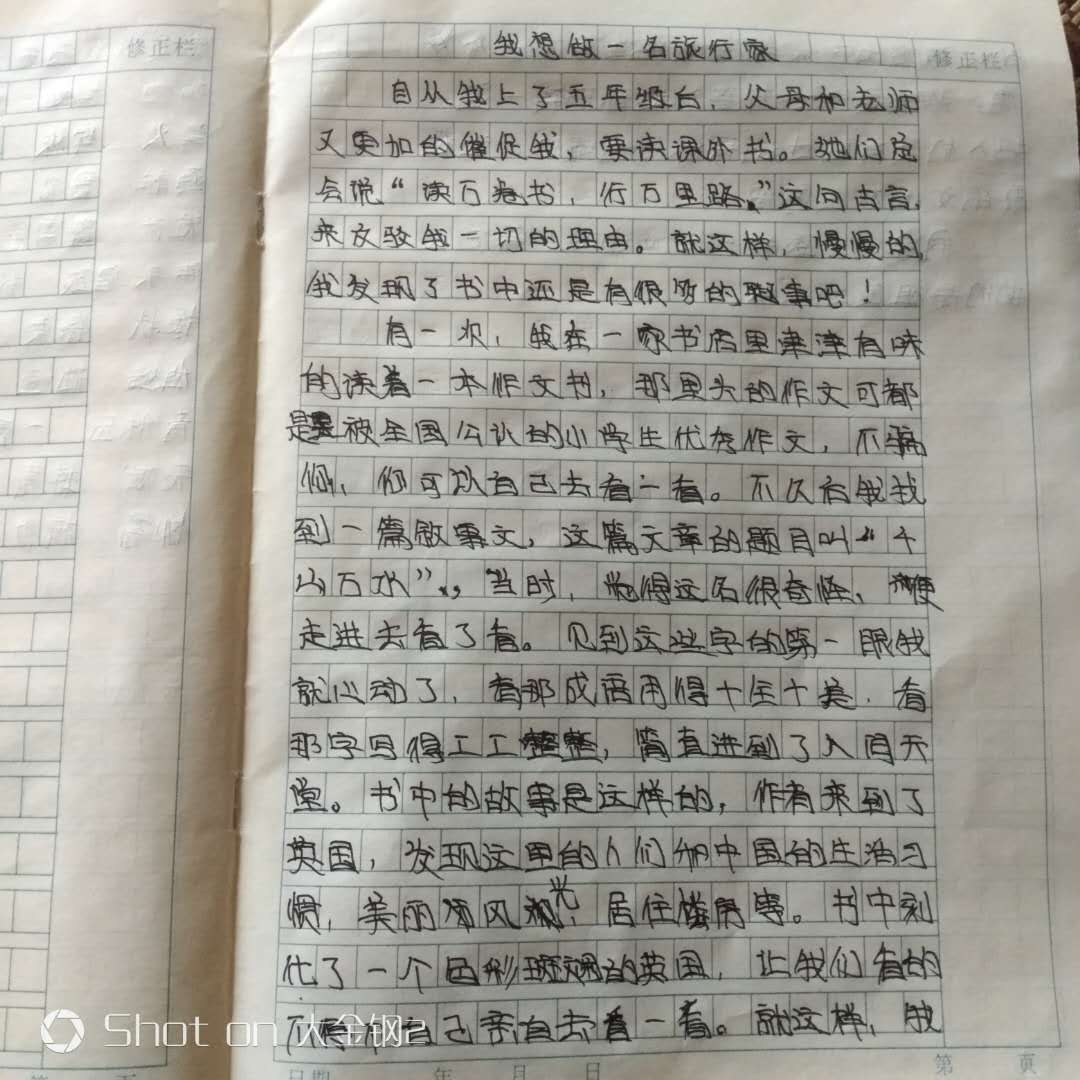 修正栏
我想做一名旅行家
修正栏
自从我上了五年级后，父母和老师
又更加的催促我，要读课外书。她们总
会说“读万卷书，行万里路。”这句古言，
来反驳我一切的理由。就这样，慢慢的，
我发现了书中还是有很多的趣事吧！
有一次，我在一家书店里津津有味
的读着一本作文书，那里头的作文可都
是被全国公认的小学生优秀作文，不骗
你，你可以自己去看一看。不久后我找
到一篇叙事文，这篇文章的题目叫“千
山万水”，当时，觉得这名很奇怪，便
走进去看了看。见到这些字的第一眼我
就心动了，看那成语用得十全十美，看
那字写得工工整整，简直进到了人间天
堂。书中的故事是这样的，作者来到了
英国，发现这里的人们和中国的生活习
惯，美丽风光，居住楼房等。书中刻
化了一个色彩斑斓的英国，让我们看的
不得不自己亲自去看一看。就这样，我
Shot on 大金钢2
日期 年 月 日
第 页